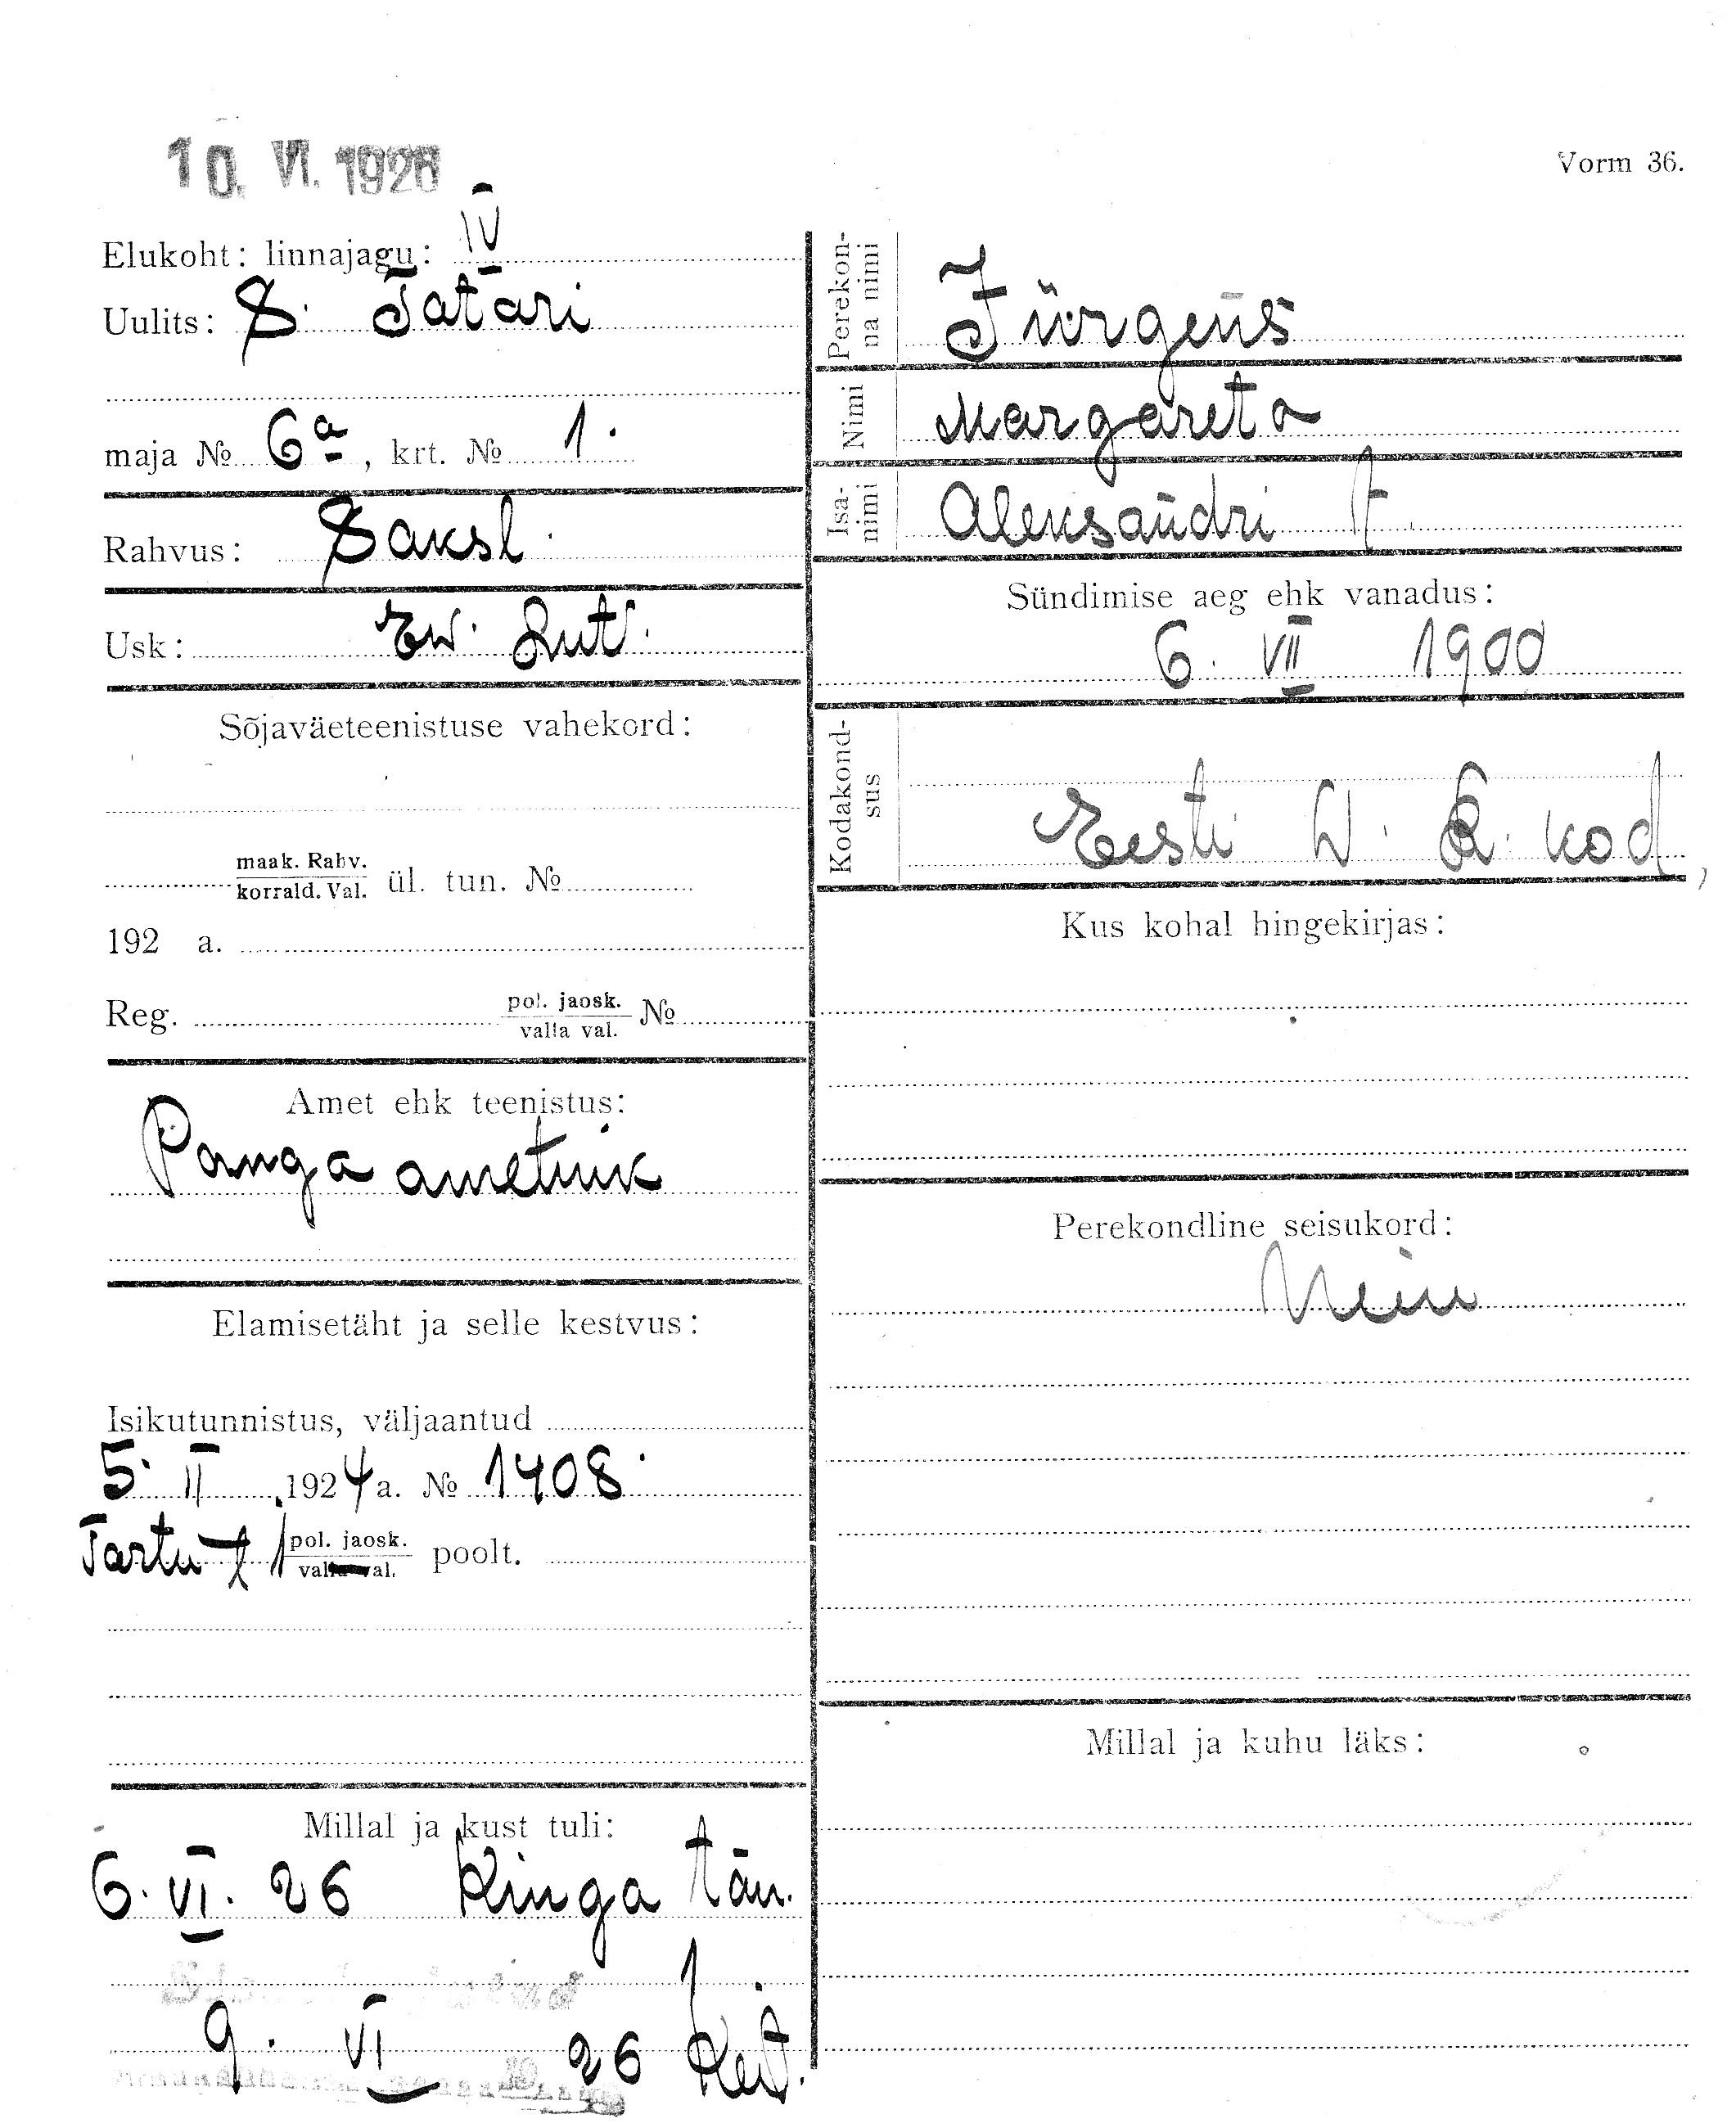 10. VI. 1926
Vorm 36.
Elukoht: linnajagu: IV
Uulits: S. Tatari
maja № 6a, krt. № 1.
Rahvus: Saksl.
Usk: Ew. Lut.
Sõjaväeteenistuse vahekord:
maak. Rahv.
korrald. Val. ül. tun. №
192 a.
Reg. pol. jaosk. №
valla val.
Amet ehk teenistus:
Panga ametnik
Elamisetäht ja selle kestvus:
Isikutunnistus, väljaantud
5. II 1924 a. № 1408.
Tartu 1 pol. jaosk. poolt.
valla val.
Millal ja kust tuli:
6. VI. 26 Kinga tän.
1
9. VI 26
Perekonna nimi
Jürgens
Nimi
Margareta
Isanimi
Aleksandri t.
Sündimise aeg ehk vanadus:
6. VII 1900
Kodakondsus
Eesti W. R. kod,
Kus kohal hingekirjas:
Perekondline seisukord:
Neiu
Millal ja kuhu läks: